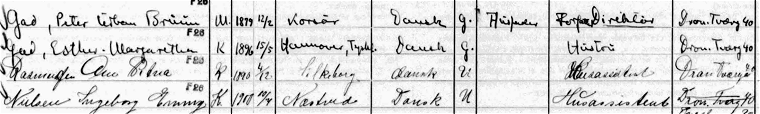 F26
Gad, Peter Urban Bruun M. 1879 12/2 Korsör Dansk g. Direktör Dron. Tværg 40
F26
Gad, Esther Margarethe K 1896 15/5 Hannover, Dansk g. Hustru Dron. Tværg 40
F26
Rasmussen Ane K 1890 Silkeborg dansk U Husassistent Dron. Tværg 40
F26
Nielsen Ingeborg Emmy K. 1900 10/4 Næstved Dansk U Husassistent Dron. Tværg 40